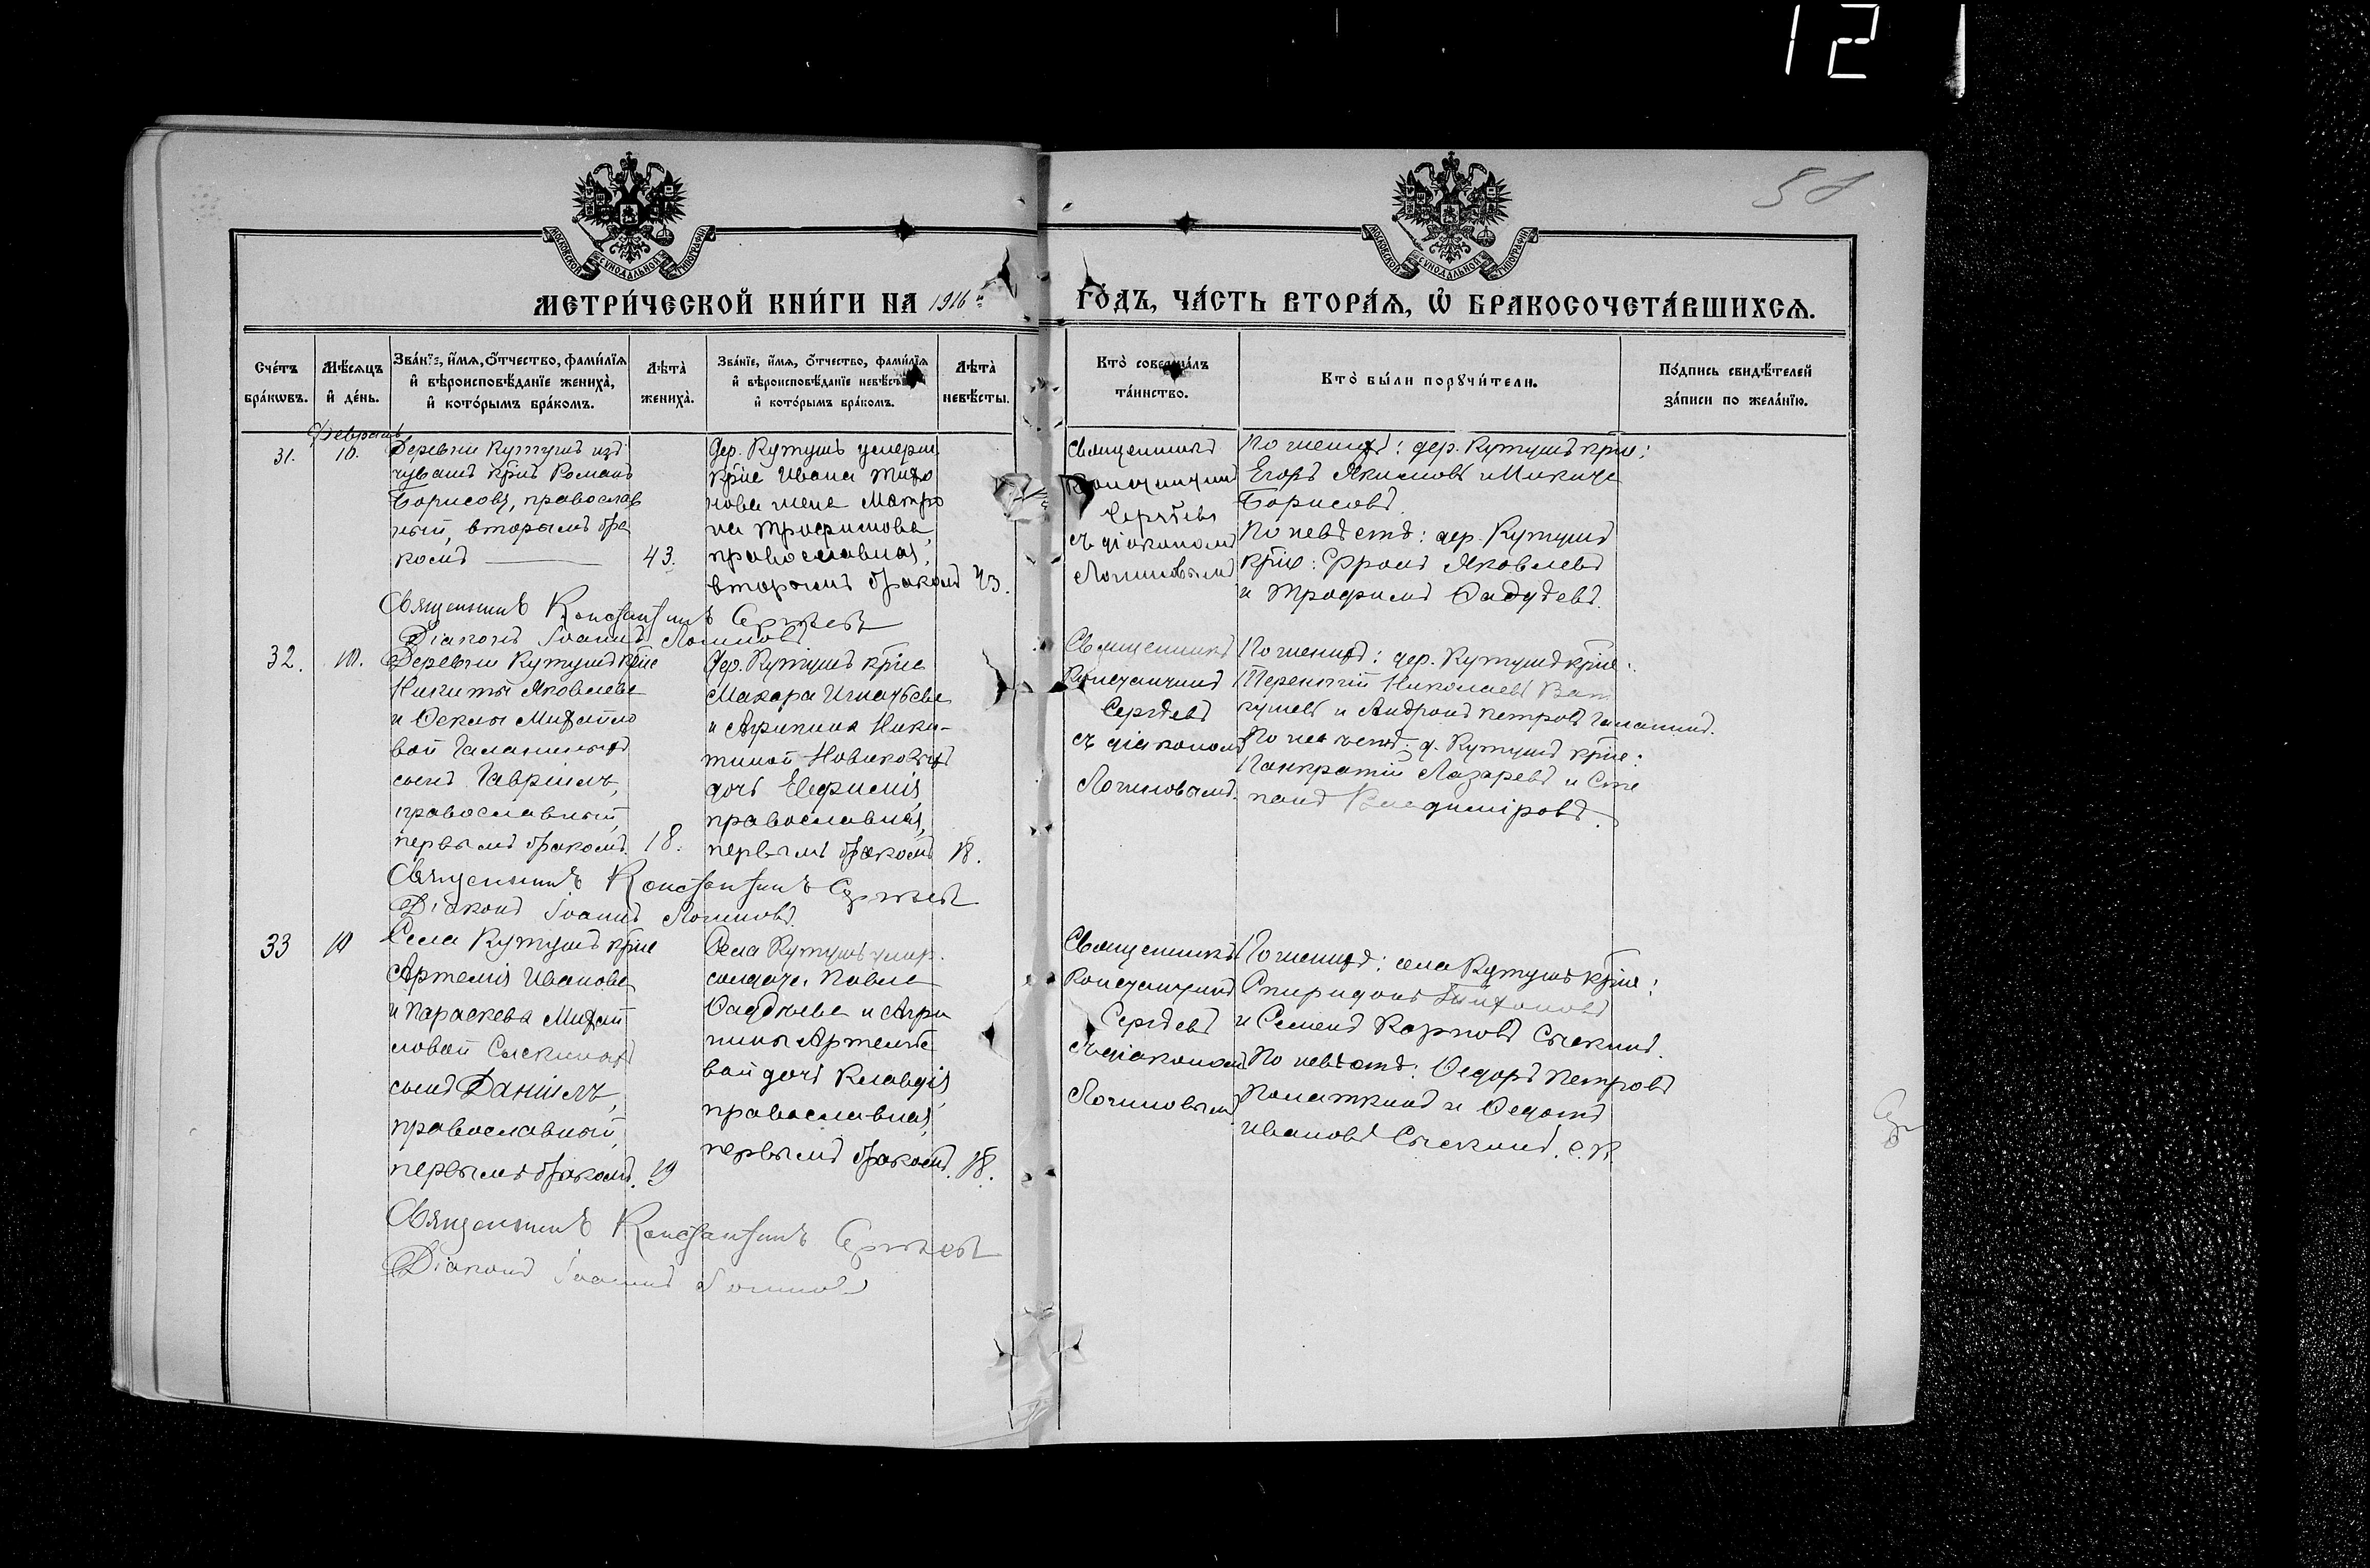 12
58
МОСКОВСКОЙ СѴНОДАЛЬНОЙ ТИПОГРАФІИ
МОСКОВСКОЙ СѴНОДАЛЬНОЙ ТИПОГРАФІИ
МЕТРИ́ЧЕСКОЙ КНИ́ГИ НА 1916 й
ГО́ДЪ, ЧА́СТЬ ВТОРА́Ѧ, Ѡ҆ БРАКОСОЧЕТА́ВШИХСѦ.
Сче́тъ бра́кѡвъ.
Мѣ́сѧцъ и҆ де́нь.
Зва́нїе, и҆́мѧ, ѻ҆́тчество, фами́лїѧ
и҆ вѣроисповѣ́данїе жениха̀,
и҆ кото́рымъ бра́комъ.
Лѣта̀ жениха̀.
Зва́нїе, и҆́мѧ, ѻ҆́тчество, фами́лїѧ
и҆ вѣроисповѣ́данїе невѣ́сты,
и҆ кото́рымъ бра́комъ.
Лѣта̀ невѣ́сты.
Кто̀ соверша́лъ та́инство.
Кто̀ бы́ли порꙋчи́тели.
По́дпись свидѣ́телей за́писи по жела́нїю.
31.
Февраль
10.
Деревни Кутушъ изъ
чувашъ кр͠нъ Романъ
Борисовъ, православ
ный, вторымъ бра
комъ
43.
Дер. Кутушъ умерш.
кр͠не Ивана Тихо
нова жена Матро
на Трофимова,
православная,
вторымъ бракомъ
43.
Священникъ
Константинъ
Сергѣевъ
съ діакономъ
Логиновымъ
По женихѣ: дер. Кутушъ кр͠не:
Егоръ Якимовъ и Никита
Борисовъ.
По невѣстѣ: дер. Кутушъ
кр͠не: Фролъ Яковлевъ
и Трофимъ Фаддѣевъ.
Священникъ Константинъ Сергѣевъ
Діаконъ Іоаннъ Логиновъ
32.
10.
Деревни Кутушъ кр͠не
Никиты Яковлева
и Ѳеклы Михайло
вой Галаниныхъ
сынъ Гавріилъ,
православный,
первымъ бракомъ.
18.
Дер. Кутушъ кр͠не
Макара Игнатьева
и Агрипина Ники-
тиной Новиковыхъ
дочь Евфимія,
православная,
первымъ бракомъ
18.
Священникъ
Константинъ
Сергѣевъ
съ діакономъ
Логиновымъ.
По женихѣ: дер. Кутушъ кр͠не:
Терентій Николаевъ
и Андронъ Петровъ Галанинъ.
По невѣстѣ: д. Кутушъ кр͠не:
Панкратій Лазаревъ и Сте
панъ Владиміровъ.
Священникъ Константинъ Сергѣевъ
Діаконъ Іоаннъ Логиновъ.
33
10
Села Кутушъ кр͠не
Артемія Иванова
и Параскева Михай
ловой Сыскиныхъ
сынъ Даніилъ,
православный,
первымъ бракомъ.
19
Села Кутушъ умер.
солдата Павла
Фаддѣева и Агри
пины Артемье
вой дочь Клавдія,
православная,
первымъ бракомъ.
18.
Священникъ
Константинъ
Сергѣевъ
съ діакономъ
Логиновымъ
По женихѣ: села Кутушъ кр͠не:
Спиридонъ Тихоновъ
и Семенъ Карповъ Сыскинъ.
По невѣстѣ: Ѳедоръ Петровъ
Полаткинъ и Ѳедотъ
Ивановъ Сыскинъ. с. К.
Священникъ Константинъ Сергѣевъ
Діаконъ Іоаннъ Логиновъ